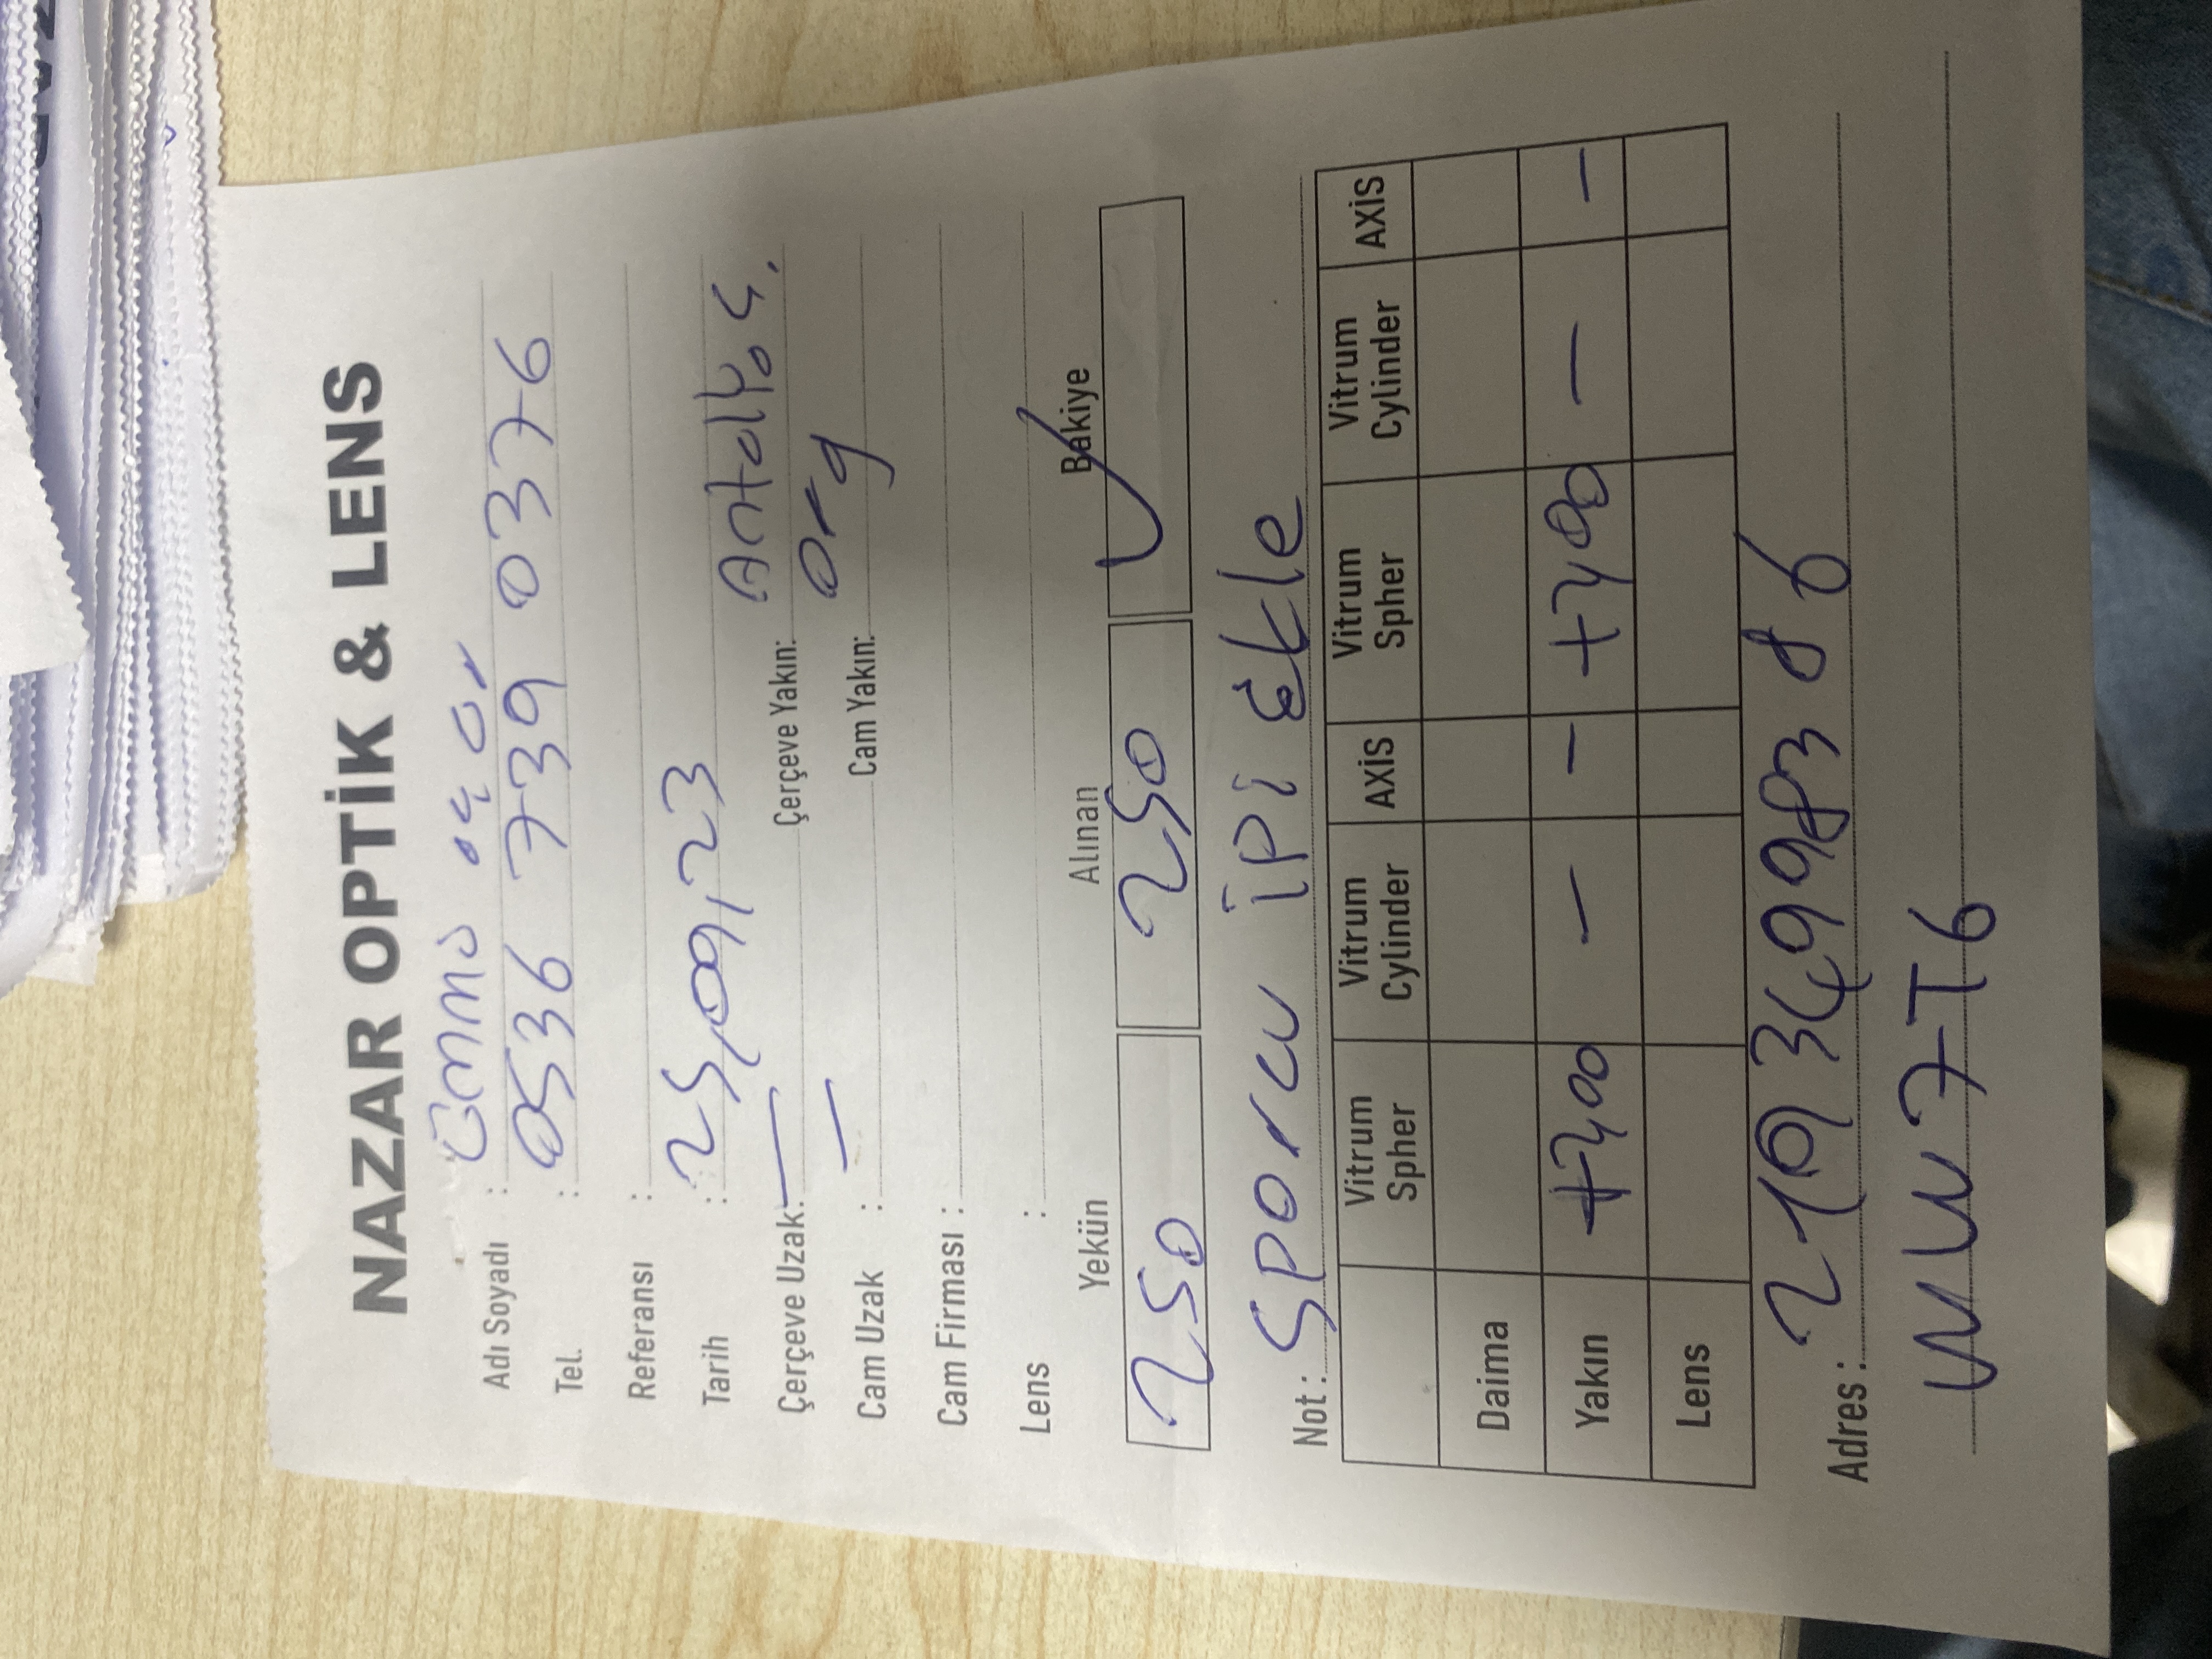 NAZAR OPTİK & LENS
Adı Soyadı :
Tel. : 0536 739 0376
Referansı :
Tarih : 25,09,23
Çerçeve Uzak: — Çerçeve Yakın: Antalya Ç.
Cam Uzak : — Cam Yakın: org
Cam Firması :
Lens :
Yekün Alınan Bakiye
250 250 ✓
Not : Sporcu ipi Ekle
Vitrum Spher Vitrum Cylinder AXİS Vitrum Spher Vitrum Cylinder AXİS
Daima
Yakın +2,00 — — +2,00 — —
Lens
Adres : 21934998386
WW7T6